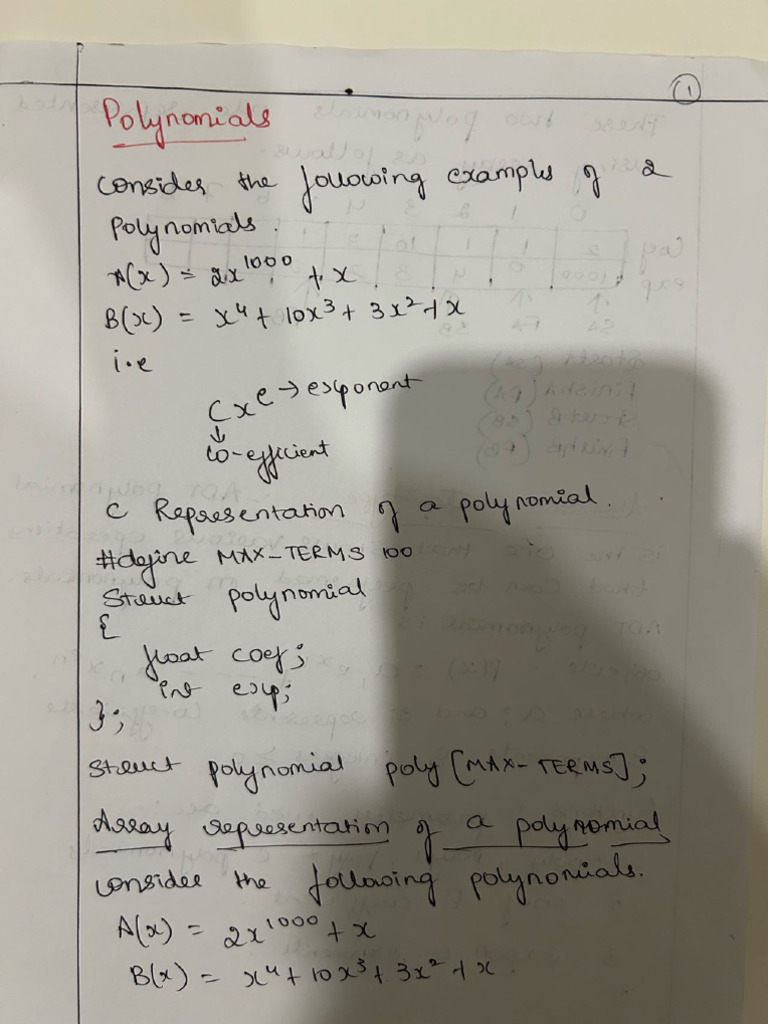 1
Polynomials
Consider the following example of 2
Polynomials.
A(x) = 2x^1000 + x
B(x) = x^4 + 10x^3 + 3x^2 + x
i.e
Cx^e → exponent
↓
Co-efficient
C Representation of a polynomial.
#define MAX-TERMS 100
Struct polynomial
{
float coef;
int exp;
};
Struct polynomial poly [MAX-TERMS];
Array representation of a polynomial
Consider the following polynomials.
A(x) = 2x^1000 + x
B(x) = x^4 + 10x^3 + 3x^2 + x